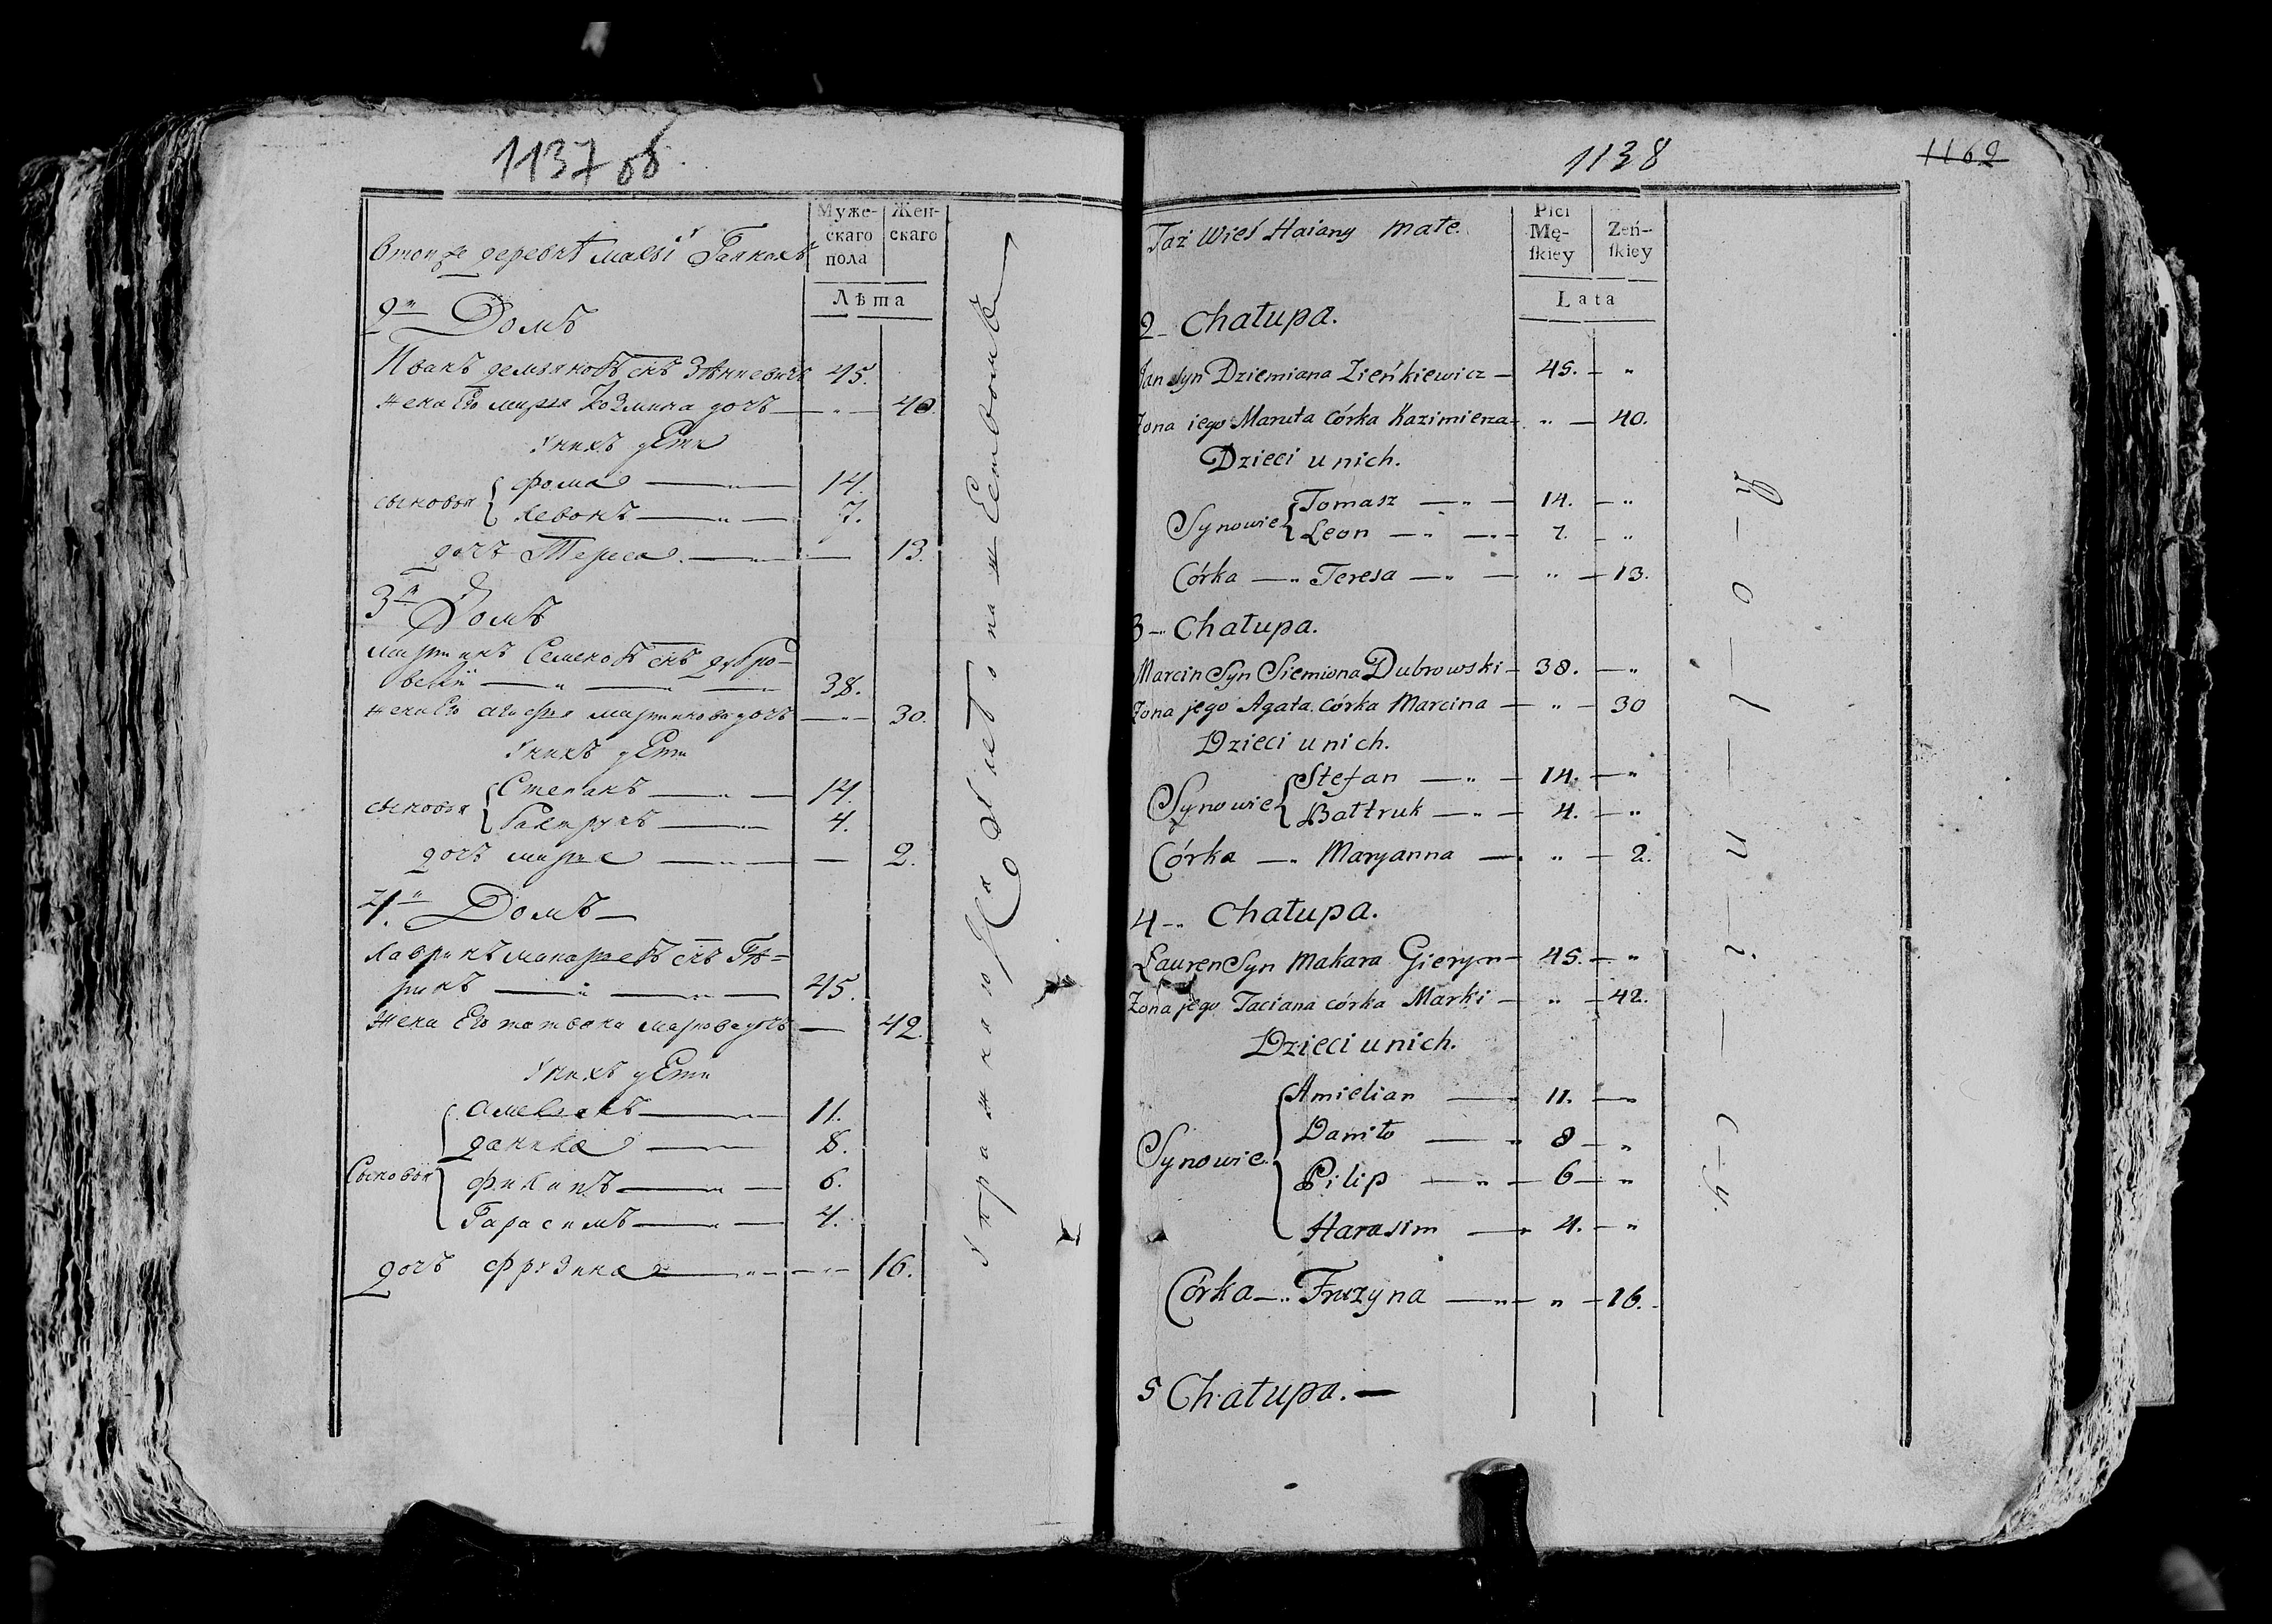 1137 об.
Муже-
скаго
пола
Жен-
скаго
Лѣта
Втойже деревнѣ
2й Домъ
Иванъ Демяновъ снъ Зѣнкевичъ 45.
Жена Его Козмина дочь — 40.
Унихъ дети
сыновья
фома — 14.
Левонъ — 7.
дочь Тереса — 13.
3й Домъ
Мартинъ Семеновъ снъ дубро-
вскiй — 38.
Жена Его мартинова дочь — 30.
Унихъ дети
сыновья
Степанъ — 14.
Балтрукъ — 4.
дочь — 2.
4. Домъ —
Лавринъ макаровъ снъ Гѣ-
ринъ — 45.
Жена Его татьяна маркова дочь — 42.
Унихъ дети
Сыновья
— 11.
данила — 8.
Филипъ — 6.
Гарасимъ — 4.
дочь фрузина — 16.
1138
1162
Płci
Mę-
skiey
Żeń-
skiey
Lata
Taż Wieś Haiany małe.
2 Chałupa.
Jan syn Dziemiana Zieńkiewicz — 45. — "
Żona iego Maruta Córka Kazimierza — " — 40.
Dzieci u nich.
Synowie
Tomasz — " — 14. — "
Leon — " — 7. — "
Córka — " Teresa — " — " — 13.
3 — " Chałupa.
Marcin Syn Siemiona Dubrowski — 38. — "
Żona jego Agata córka Marcina — " — 30
Dzieci u nich.
Synowie
Stefan — " — 14. — "
Bałtruk — " — 4. — "
Córka — " Maryanna — " — 2.
4 — " Chałupa.
Lauren Syn Makara Gieryn — 45. — "
Żona jego Taciana córka Marki — " — 42.
Dzieci u nich.
Synowie
Amielian — 11. — "
Daniło — " 8 — "
Pilip — " — 6 — "
Harasim — " 4. — "
Córka — " Fruzyna — " — " — 16.
5 Chałupa. —
R — o — l — n — i — c — y.